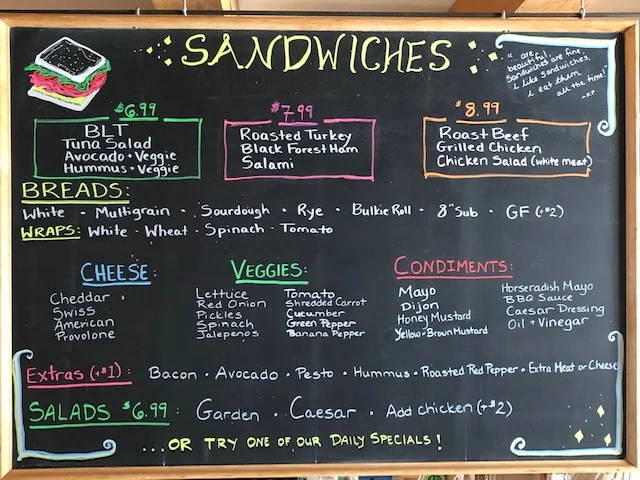 SANDWICHES
"... are
beautiful, are fine.
Sandwiches
I like sandwiches,
I eat them
all the time!"
$6.99
BLT
Tuna Salad
Avocado + Veggie
Hummus + Veggie
$7.99
Roasted Turkey
Black Forest Ham
Salami
$8.99
Roast Beef
Grilled Chicken
Chicken Salad (white meat)
BREADS:
White - Multigrain - Sourdough - Rye - Bulkie Roll - 8" Sub - GF (+$2)
WRAPS: White - Wheat - Spinach - Tomato
CHEESE:
Cheddar
Swiss
American
Provolone
VEGGIES:
Lettuce
Red Onion
Pickles
Spinach
Jalepenos
Tomato
Shredded Carrot
Cucumber
Green Pepper
Banana Pepper
CONDIMENTS:
Mayo
Dijon
Honey Mustard
Yellow + Brown Mustard
Horseradish Mayo
BBQ Sauce
Caesar Dressing
Oil + Vinegar
Extras (+$1): Bacon • Avocado • Pesto • Hummus • Roasted Red Pepper • Extra Meat or Cheese
SALADS $6.99: Garden • Caesar • Add chicken (+$2)
...OR TRY ONE OF OUR DAILY SPECIALS!